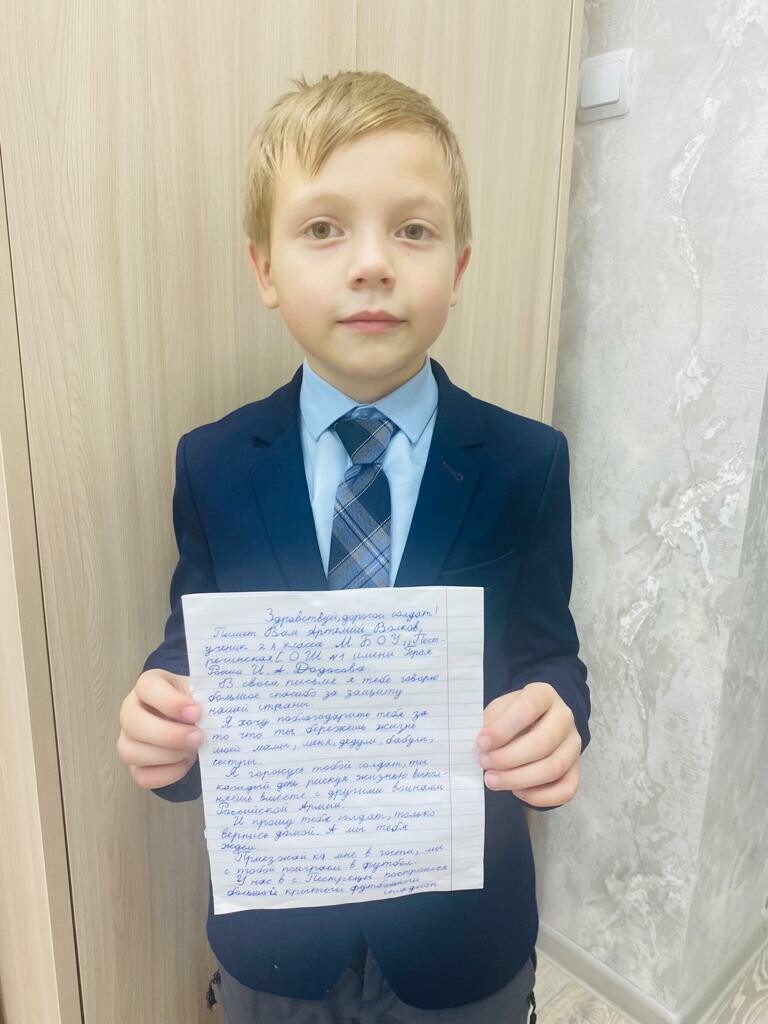 Здравствуй, дорогой солдат!
Пишет Вам Артемий Волков,
ученик 2А класса МБОУ ,,Пест-
речинская СОШ №1 имени Героя
России И. А.
В своем письме я тебе говорю
большое спасибо за защиту
нашей страны.
Я хочу поблагодарить тебя за
то что ты бережешь жизнь
моей мамы, меня, дедули, бабули,
сестры.
Я горжусь тобой солдат, ты
каждый день рискуя жизнью выпол-
няешь вместе с другими воинами
Российской Армии.
И прошу тебя солдат, только
вернись домой. А мы тебя
ждем.
Приезжай ко мне в гости, мы
с тобой поиграем в футбол.
У нас в с. Пестрецы построился
большой крытый футбольный
стадион